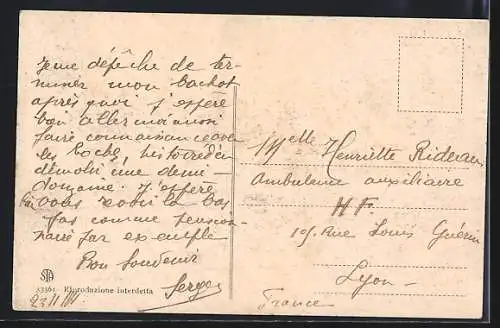 Je me dépêche de ter-
miner mon bachot
après quoi j'espère
bien aller moi aussi
faire connaissance avec
les boche, histoire d'en
démolir une demi-
douzaine. J'espère
vous revoir là bas
pas comme pension-
naire par exemple
Bon Souvenir
Serge
33361 Riproduzione interdetta
STA
23 11 14
Melle Henriette Rideau
Ambulance auxiliaire
HF.
105 Rue Louis Guérin
Lyon -
France